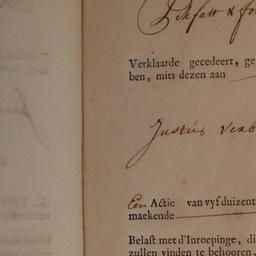 & fo
Verklaarde gecedeert, ge
ben, mits dezen aan
Justus
Een Actie van vyf duizent
maekende
Belast met d'Inroepinge, di
zullen vinden te behooren